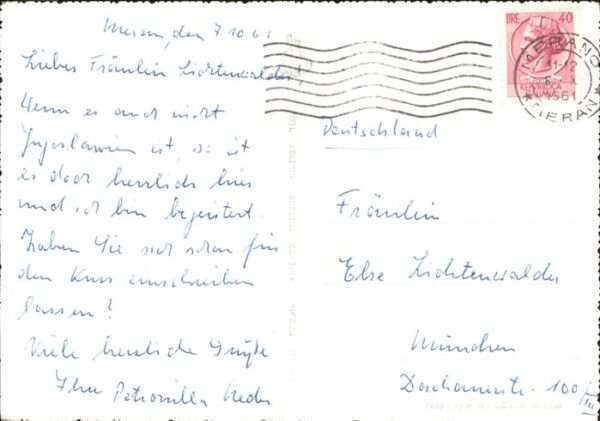 Meran, den 7.10.61
Liebes Fräulein Lichtenwalder
Wenn es auch nicht
Jugoslawien ist, so ist
es doch herrlich hier
und ich bin begeistert.
Haben Sie sich schon für
den Kurs einschreiben
lassen?
Viele herzliche Grüße
Ihre Petronilla
LIRE 40
MERANO
MERAN
1961
Deutschland
Fräulein
Else Lichtenwalder
München
Dachauerstr. 100/III